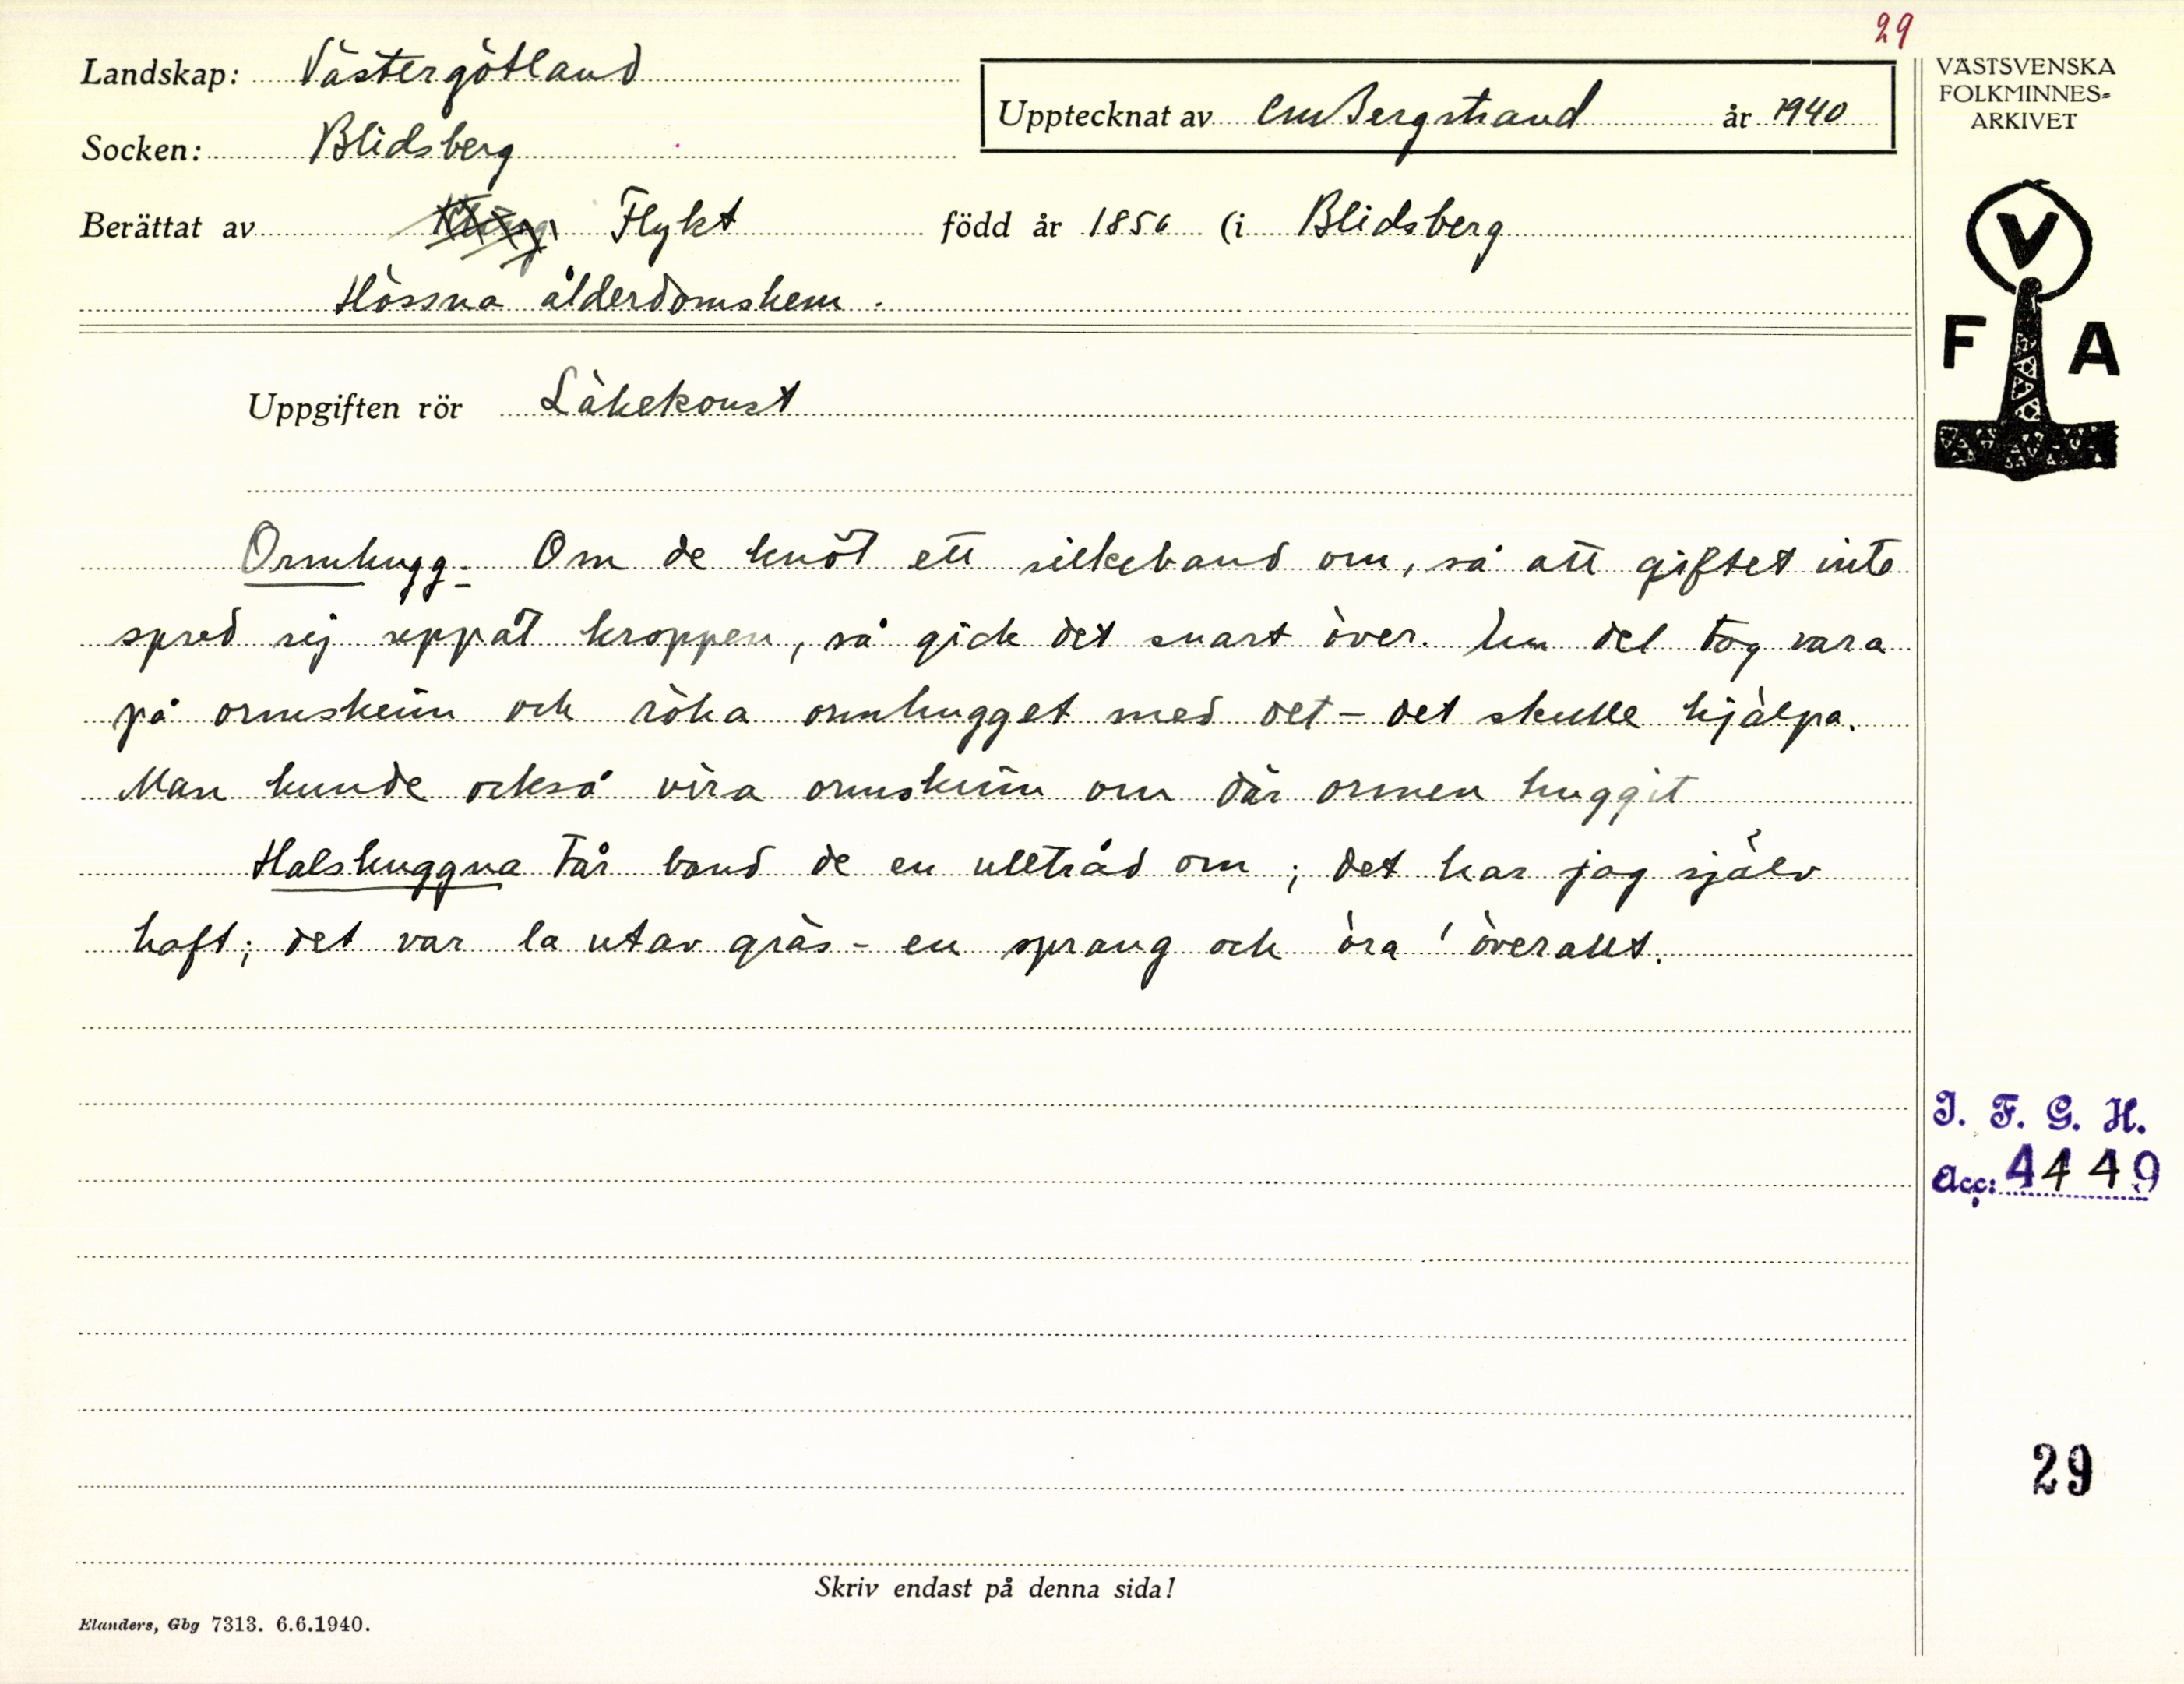 29
Landskap: Västergötland
Upptecknat av CM Bergstrand år 1940
Socken: Blidsberg
Berättat av Flykt född år 1856 (i Blidsberg
Hössna ålderdomshem.
VÄSTSVENSKA
FOLKMINNES-
ARKIVET
V
F A
Uppgiften rör Läkekonst
Ormhugg. Om de knöt ett silkeband om, så att giftet inte
spred sej uppåt kroppen, så gick det snart över. En del tog vara
på ormskinn och röka ormhugget med det - det skulle hjälpa.
Man kunde också vira ormskinn om där ormen huggit
Halshuggna tår band de en ulltråd om; det har jag själv
haft; det var la utav gräs - en sprang och öra! överallt.
I. F. G. H.
Acc: 4449
29
Skriv endast på denna sida!
Elanders, Gbg 7313. 6.6.1940.